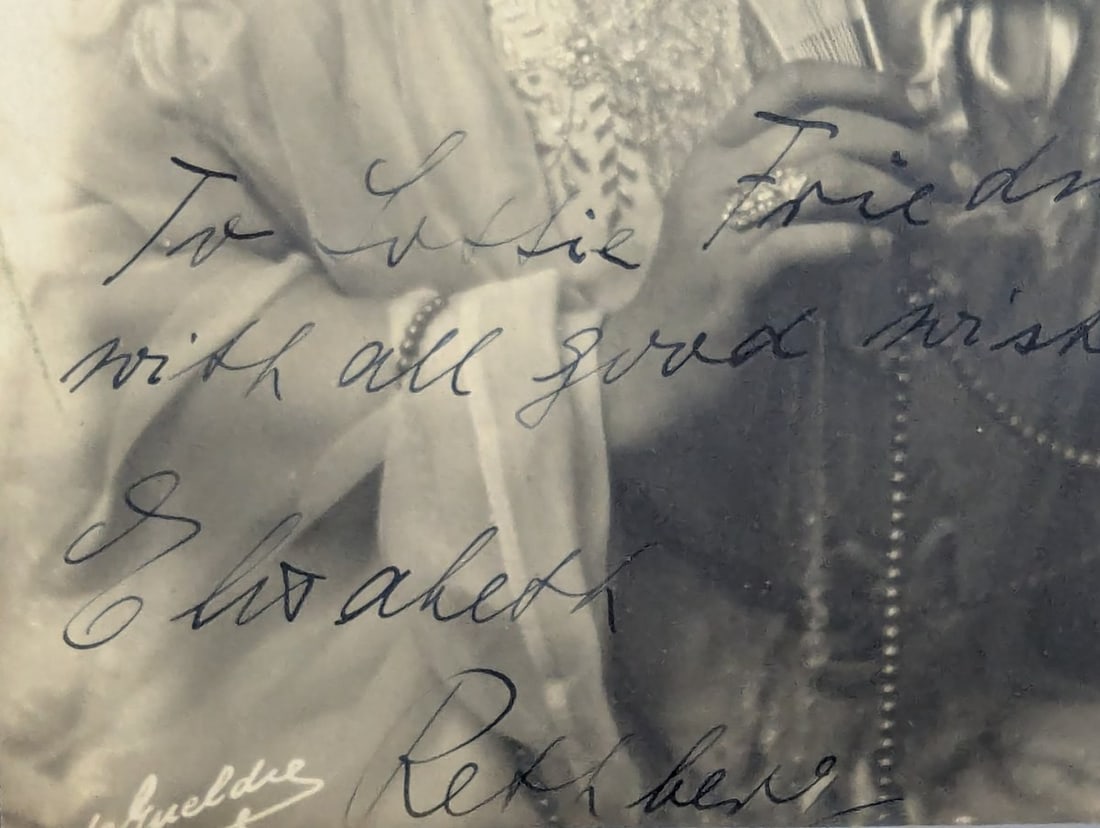 To Lottie Friedm
with all good wish
Elisabeth
Rethberg
de Gueldre